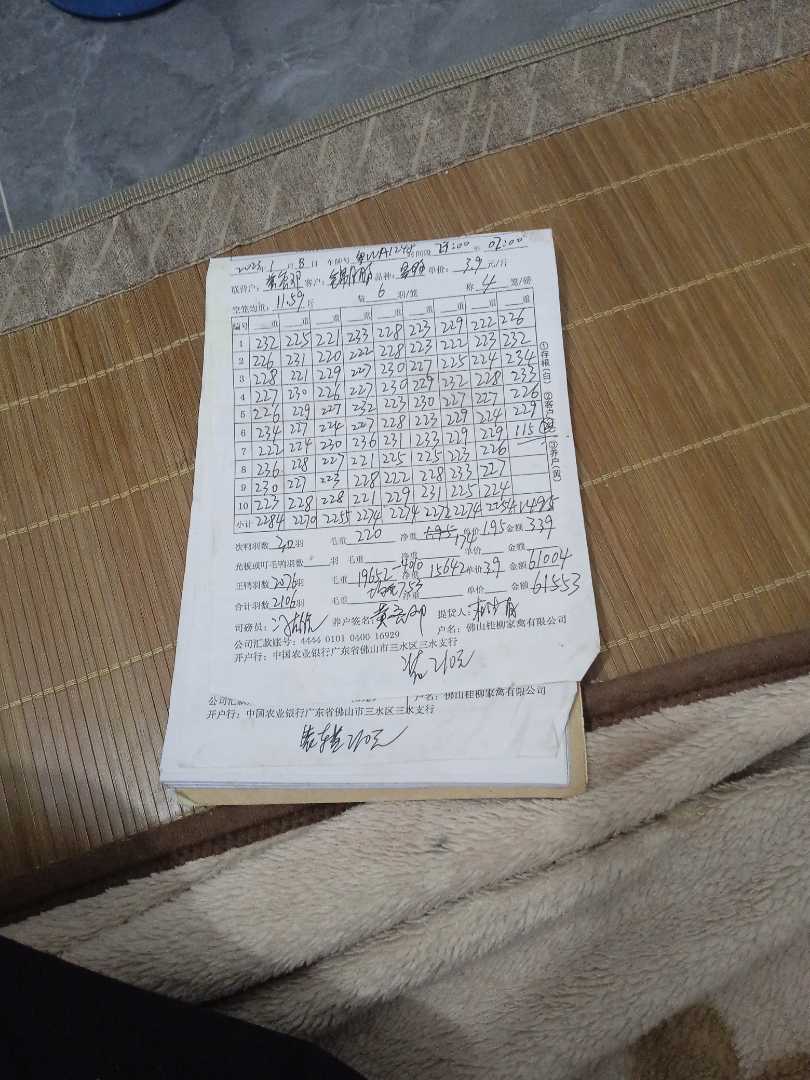 2023年1月8日 车牌号 时间段 21:00 至 02:00
联营户: 客户: 品种: 单价: 3.9 元/斤
空笼均重: 11.59 斤 装 6 羽/笼 称 4 笼/磅
编号 重 重 重 重 重 重 重 重 重
1 232 225 221 233 228 223 229 222 226
2 226 231 220 222 228 223 222 223 232
3 228 221 229 227 230 227 225 224 234
4 227 230 226 227 230 229 232 228 233
5 226 229 227 232 223 230 227 227 226
6 234 227 224 227 228 223 229 224 229
7 222 224 230 236 231 233 229 229 115
8 236 228 227 221 225 225 223 226
9 230 227 223 228 222 228 233 227
10 223 228 228 221 229 231 225 224
小计 2284 2270 2255 2274 2274 2272 2274 2254 1495
①存根(白) ②客户 ③养户(黄)
次鸭羽数 30羽 毛重 220 净重 单价 1.95 金额 339
光板或叮毛鸭羽数 羽 毛重 净重 单价 金额
正鸭羽数 2076羽 毛重 19652 4010 净重 15642 单价 3.9 金额 61004
合计羽数 2106羽 毛重 7.53 净重 单价 金额 61553
司磅员: 养户签名: 提货人:
公司汇款账号: 4444 0101 0400 16929 户名: 佛山桂柳家禽有限公司
开户行: 中国农业银行广东省佛山市三水区三水支行
210元
公司汇款 户名: 佛山桂柳家禽有限公司
开户行: 中国农业银行广东省佛山市三水区三水支行
210元